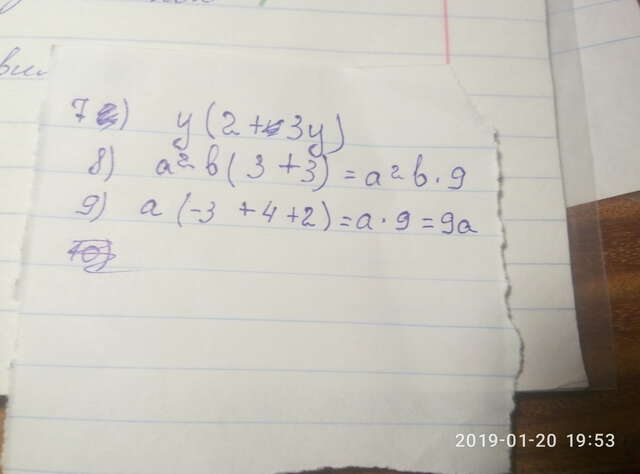 7) y(2+3y)
8) a²b(3+3)=a²b·9
9) a(-3+4+2)=a·9=9a
2019-01-20 19:53